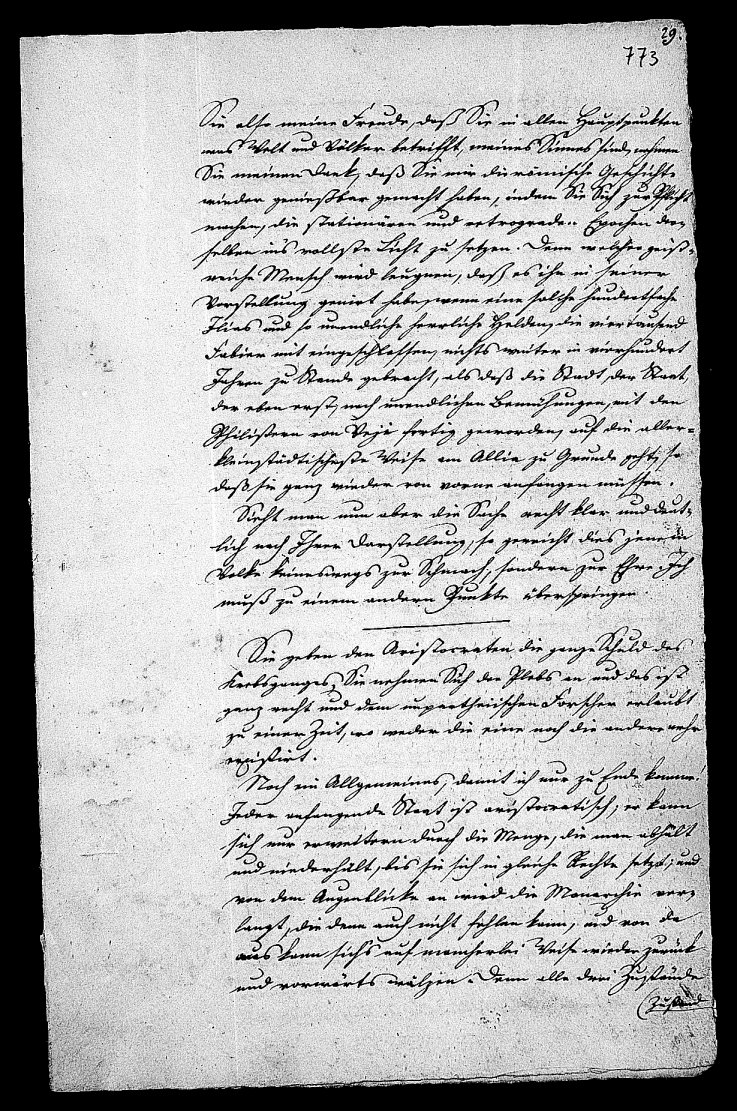 29.
773
Sie also meine Freude, daß Sie in allen Hauptpunkten
was Welt und Völker betrifft, meines Sinnes sind, nehmen
Sie meinen Dank, daß Sie mir die römische Geschichte
wieder genießbar gemacht haben, indem Sie Sich zur Pflicht
machen, die stationären und retrograden Epochen der-
selben ins vollste Licht zu setzen. Denn welcher geist-
reiche Mensch wird leugnen, daß es ihn in seiner
Vorstellung genirt habe, wenn eine solche hundertfache
Ilias und so unendliche herrliche Helden, die viertausend
Fabier mit eingeschlossen, nichts weiter in vierhundert
Jahren zu Stande gebracht, als daß die Stadt, der Staat,
der eben erst, nach unendlichen Bemühungen, mit den
Philistern von Veji fertig geworden, auf die aller-
kleinstädtischeste Weise am Allia zu Grunde geht, so
daß sie ganz wieder von vorne anfangen müssen.
Sieht man nun aber die Sache recht klar und deut-
lich nach Ihrer Darstellung, so gereicht dies jenem
Volke keineswegs zur Schmach, sondern zur Ehre. Ich
muß zu einem andern Punkte überspringen.
Sie geben den Aristocraten die ganze Schuld des
Krebsganges, Sie nehmen Sich der Plebs an und das ist
ganz recht und dem unpartheiischen Forscher erlaubt
zu einer Zeit, wo weder die eine noch die andere mehr
existirt.
Noch ein Allgemeines, damit ich nur zu Ende komme!
Jeder anfangende Staat ist aristocratisch, er kann
sich nur erweitern durch die Menge, die man abhält
und niederhält, bis sie sich in gleiche Rechte setzt; und
von dem Augenblicke an wird die Monarchie ver-
langt, die denn auch nicht fehlen kann, und von da
aus kann sichs auf mancherlei Weise wieder zurück
und vorwärts wälzen. Denn alle drei Zustände
(Zustand